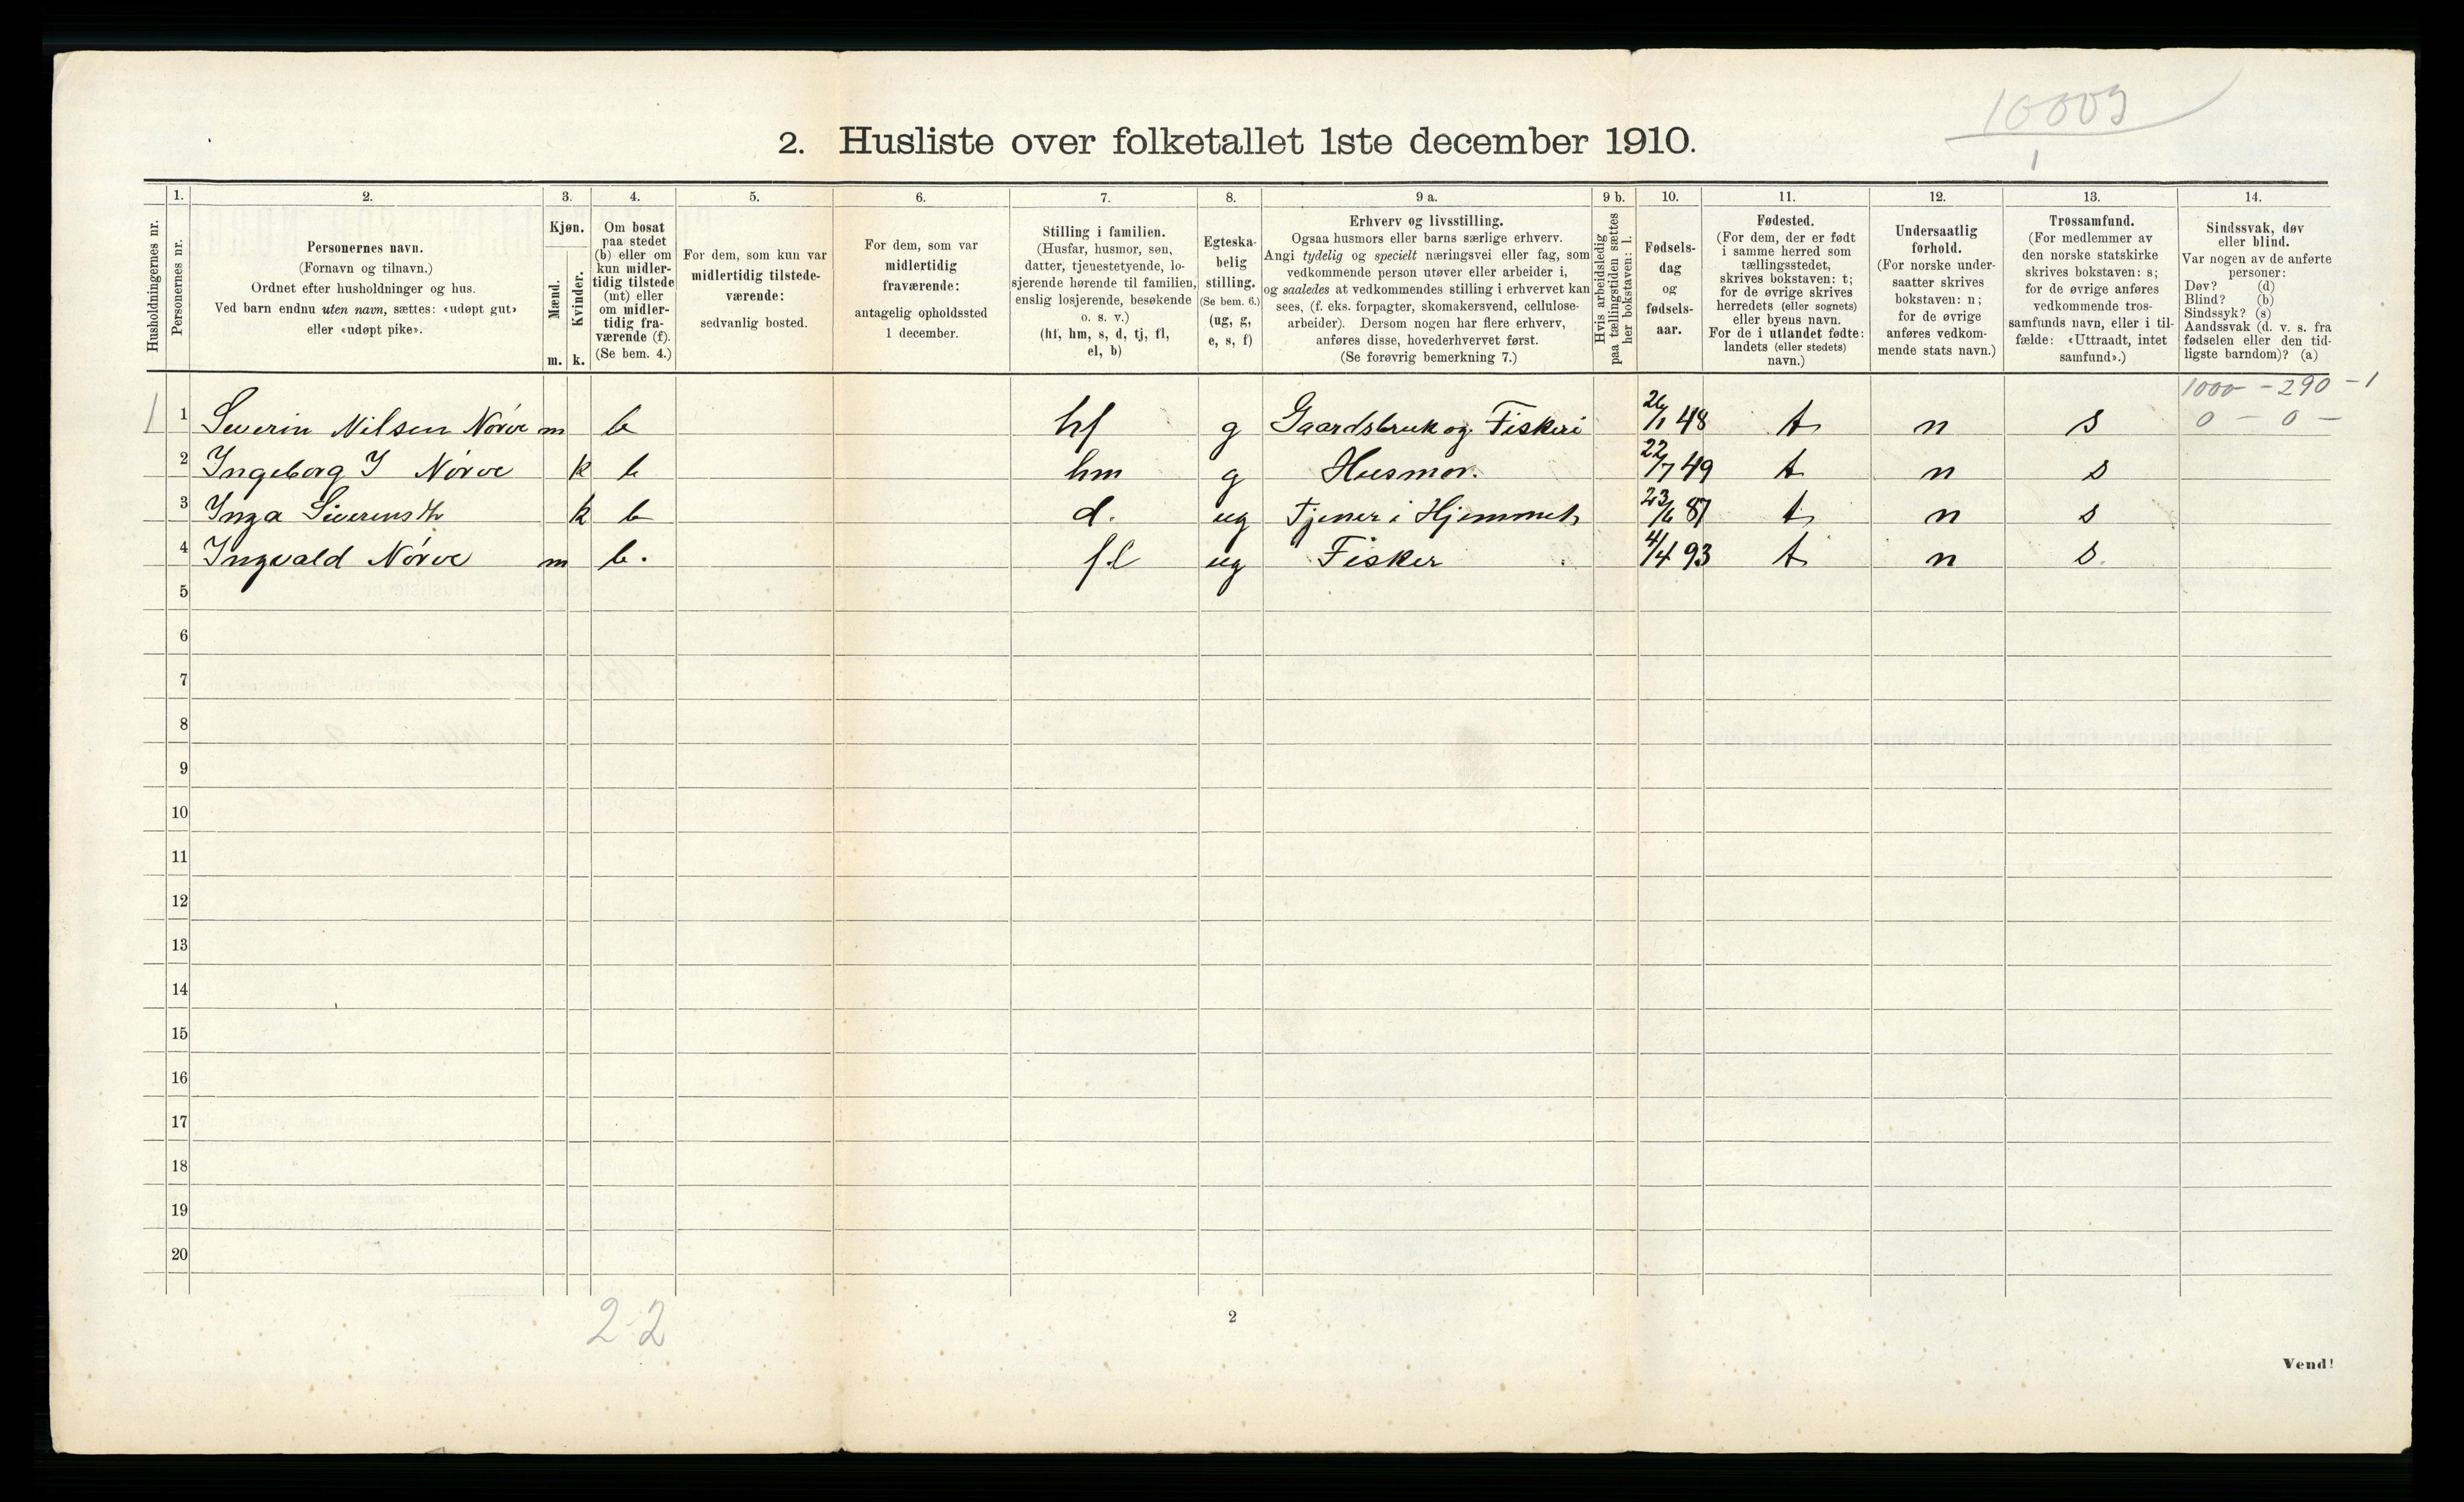 10003
1
2. Husliste over folketallet 1ste december 1910.
Husholdningernes nr.
1.
Personernes nr.
2.
Personernes navn.
(Fornavn og tilnavn.)
Ordnet efter husholdninger og hus.
Ved barn endnu uten navn, sættes: «udøpt gut»
eller «udøpt pike».
3.
Kjøn.
Mænd.
Kvinder.
m.
k.
4.
Om bosat
paa stedet
(b) eller om
kun midler-
tidig tilstede
(mt) eller
om midler-
tidig fra-
værende (f).
(Se bem. 4.)
5.
For dem, som kun var
midlertidig tilstede-
værende:
sedvanlig bosted.
6.
For dem, som var
midlertidig
fraværende:
antagelig opholdssted
1 december.
7.
Stilling i familien.
(Husfar, husmor, søn,
datter, tjenestetyende, lo-
sjerende hørende til familien,
enslig losjerende, besøkende
o. s. v.)
(hf, hm, s, d, tj, fl,
el, b)
8.
Egteska-
belig
stilling.
(Se bem. 6.)
(ug, g,
e, s, f)
9 a.
Erhverv og livsstilling.
Ogsaa husmors eller barns særlige erhverv.
Angi tydelig og specielt næringsvei eller fag, som
vedkommende person utøver eller arbeider i,
og saaledes at vedkommendes stilling i erhvervet kan
sees, (f. eks. forpagter, skomakersvend, cellulose-
arbeider). Dersom nogen har flere erhverv,
anføres disse, hovederhvervet først.
(Se forøvrig bemerkning 7.)
9 b.
Hvis arbeidsledig
paa tællingstiden sættes
her bokstaven: l.
10.
Fødsels-
dag
og
fødsels-
aar.
11.
Fødested.
(For dem, der er født
i samme herred som
tællingsstedet,
skrives bokstaven: t;
for de øvrige skrives
herredets (eller sognets)
eller byens navn.
For de i utlandet fødte:
landets (eller stedets)
navn.)
12.
Undersaatlig
forhold.
(For norske under-
saatter skrives
bokstaven: n;
for de øvrige
anføres vedkom-
mende stats navn.)
13.
Trossamfund.
(For medlemmer av
den norske statskirke
skrives bokstaven: s;
for de øvrige anføres
vedkommende tros-
samfunds navn, eller i til-
fælde: «Uttraadt, intet
samfund».)
14.
Sindssvak, døv
eller blind.
Var nogen av de anførte
personer:
Døv? (d)
Blind? (b)
Sindssyk? (s)
Aandssvak (d. v. s. fra
fødselen eller den tid-
ligste barndom)? (a)
1000 - 290 - 1
0 - 0 -
1 1 Severin Nilsen Nörve m b hf g Gaardsbruk og Fiskeri 26/1 48 t n s
2 Ingeborg I Nörve k b hm g Husmor. 22/7 49 t n s
3 Inga Siverensdtr k b d. ug Tjener i Hjemmet 23/6 87 t n s
4 Ingvald Nörve m b. f.l ug Fisker 4/4 93 t n s.
5
6
7
8
9
10
11
12
13
14
15
16
17
18
19
20
2-2
2
Vend!